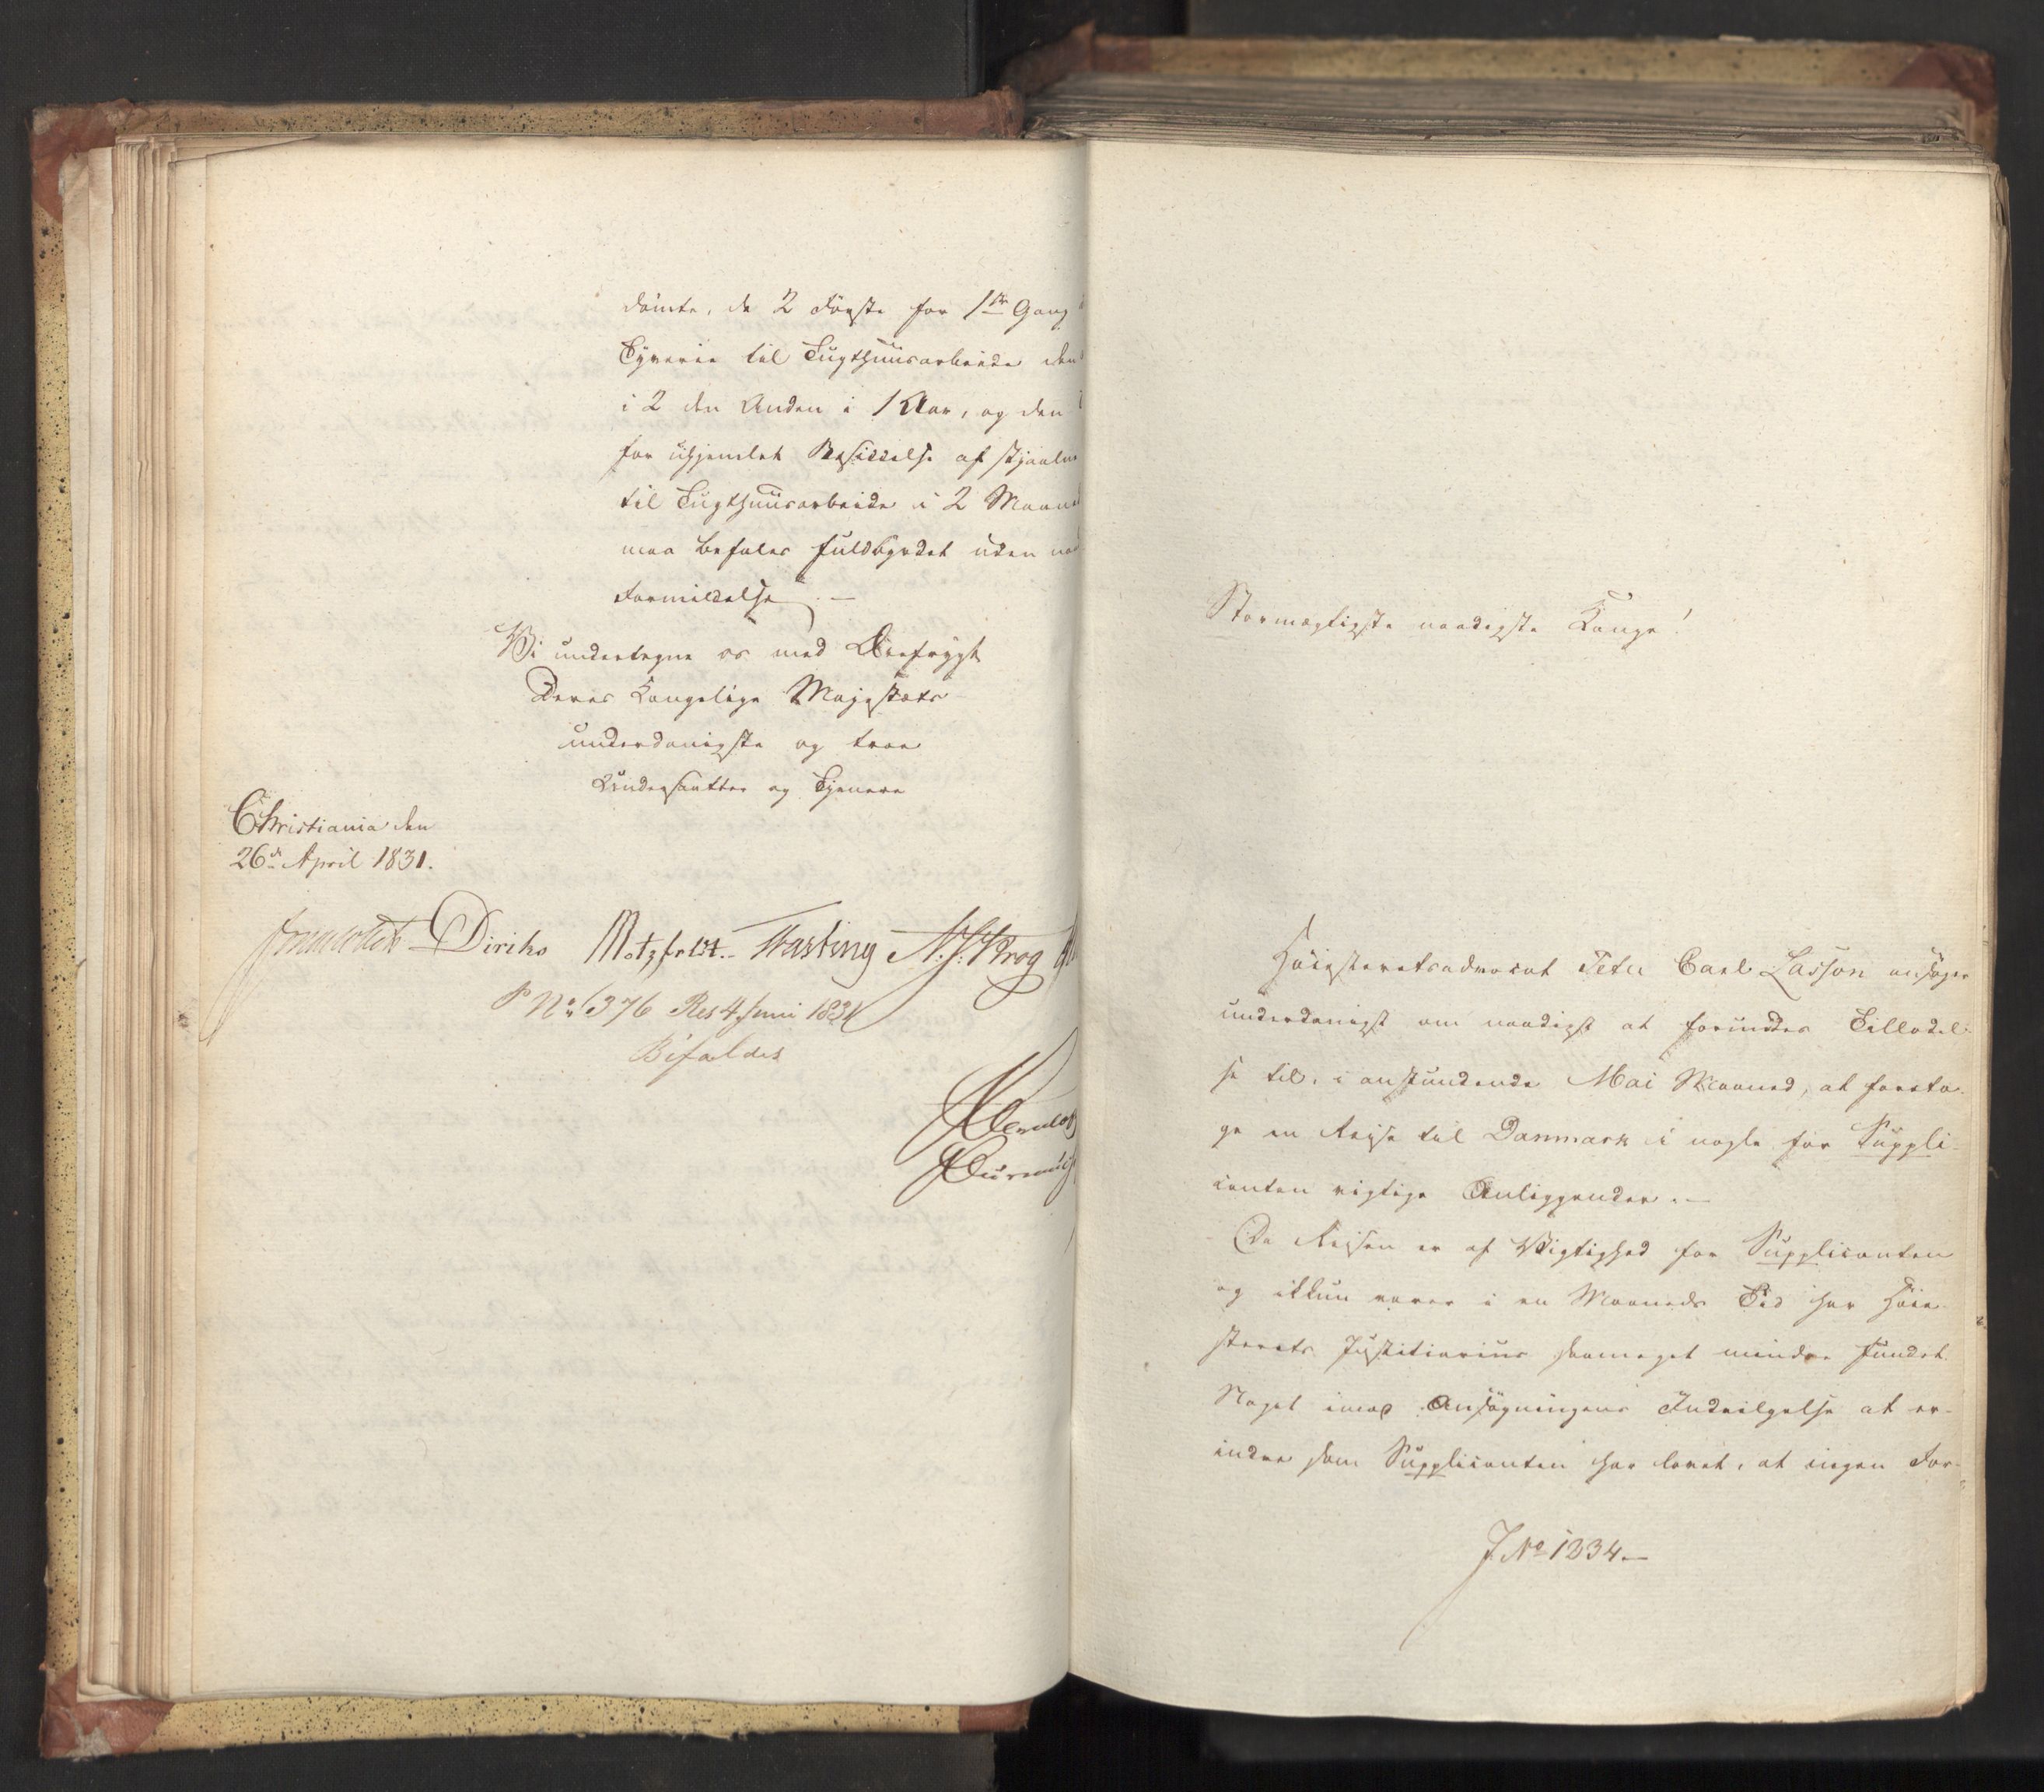 dømte, de 2 Første for 1ste Gang
Tyverie til Tugthuusarbeide den
i 2 den Anden i 1 Aar, og den
for uhjemlet Besiddelse af stjaalne
til Tugthuusarbeide i 2 Maane
maa befales fuldbyrdet uden
Formildelse. —
Vi undertegne os med Ærefrygt
Deres Kongelige Majestæts
underdanigste og troe
Undersaatter og Tjenere
Christiania den
26de April 1831.
Diriks Motzfeldt. Fasting N. J. Krog
P No 376 Res 4 Juni 1831
Bifaldes
Stormægtigste naadigste Konge!
Høiesteretsadvocat Peter Carl Lasson ansøger
underdanigst om naadigst at forundes Tilladel-
se til, i anstundende Mai Maaned, at foreta-
ge en Reise til Danmark i nogle for Suppli-
canten vigtige Anliggender. —
Da Reisen er af Vigtighed for Supplicanten
og ikkun varer i en Maaneds Tid har Høie-
sterets Justitiarius saameget mindre fundet
Noget imod Ansøgningens Indvilgelse at er-
indre som Supplicanten har lovet, at ingen For-
J. No 1234 —